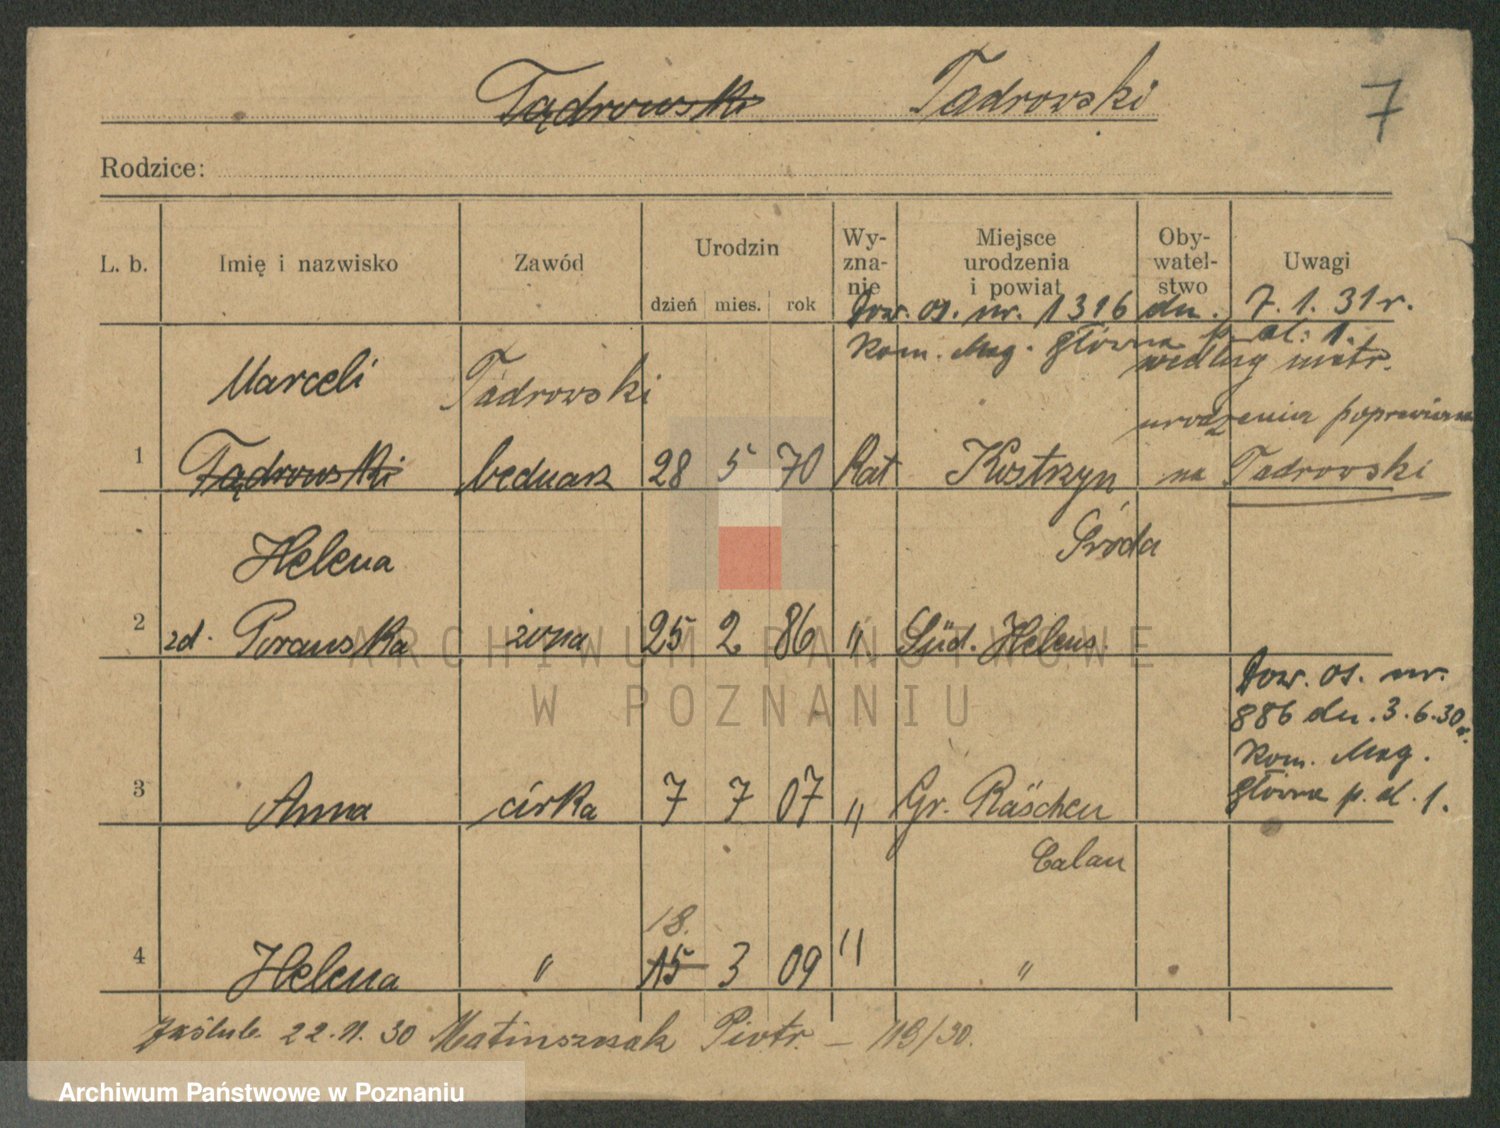 Tądrowski Tadrowski
7
Rodzice:
L. b. Imię i nazwisko Zawód Urodzin dzień mies. rok Wy-zna-nie Miejsce urodzenia i powiat Oby-watel-stwo Uwagi
Dow. os. nr. 1316 dn. 7.1.31r.
Kom. Mag. Główna p. al. 1.
według metr.
Marceli Tadrowski
urodzenia poprawiono
1 Tądrowski bednarz 28 5 70 Kat Kostrzyn na Tadrowski
Środa
Helena
2 zd. Porawska żona 25 2 86 " Süd. Helens.
Dow. os. nr.
886 dn. 3.6.30r.
Kom. Mag.
3 Anna córka 7 7 07 " Gr. Räschen Główna p. al. 1.
Calau
18.
4 Helena " 15 3 09 " "
Zaślub. 22.11.30 Piotr. – 119/30.
ARCHIWUM PAŃSTWOWE
W POZNANIU
Archiwum Państwowe w Poznaniu